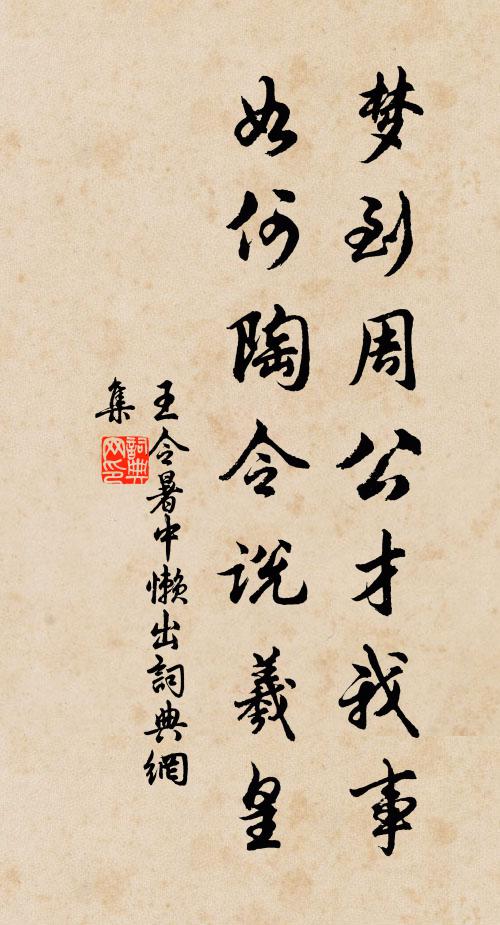 梦到周公才我事
如何陶令说羲皇
王令暑中懒出詞典網
集
詞典网印